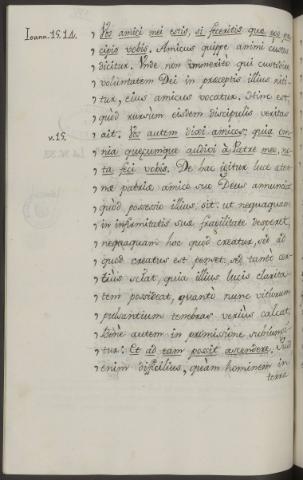 Ioann. 15. 14.
Vos amici mei estis, si feceritis quæ ego præ-
cipio vobis. Amicus quippe animi custos
dicitur. Unde non immerito qui custodire
voluntatem Dei in præceptis illius niti-
tur, ejus amicus vocatur. Hinc est,
quòd rursùm eisdem discipulis veritas
v. 15.
ait. Vos autem dixi amicos, quia om-
nia quæcumque audivi à Patre meo, no-
ta feci vobis. De hac igitur luce æter-
næ patriæ amico suo Deus annunciat
quòd possessio illius sit: ut nequaquam
in infirmitatis suæ fragilitate desperet,
nequaquam hoc quod creatur, sed ad
quod creatus est penset. Et tantò cer-
tiùs sciat, quia illius lucis clarita-
tem possideat, quantò nunc vitiorum
pulsantium tenebras veriùs calcat.
Bene autem in promissione subjungi-
tur: Et ad eam possit ascendere. Quid
enim difficilius, quàm hominem in
terra